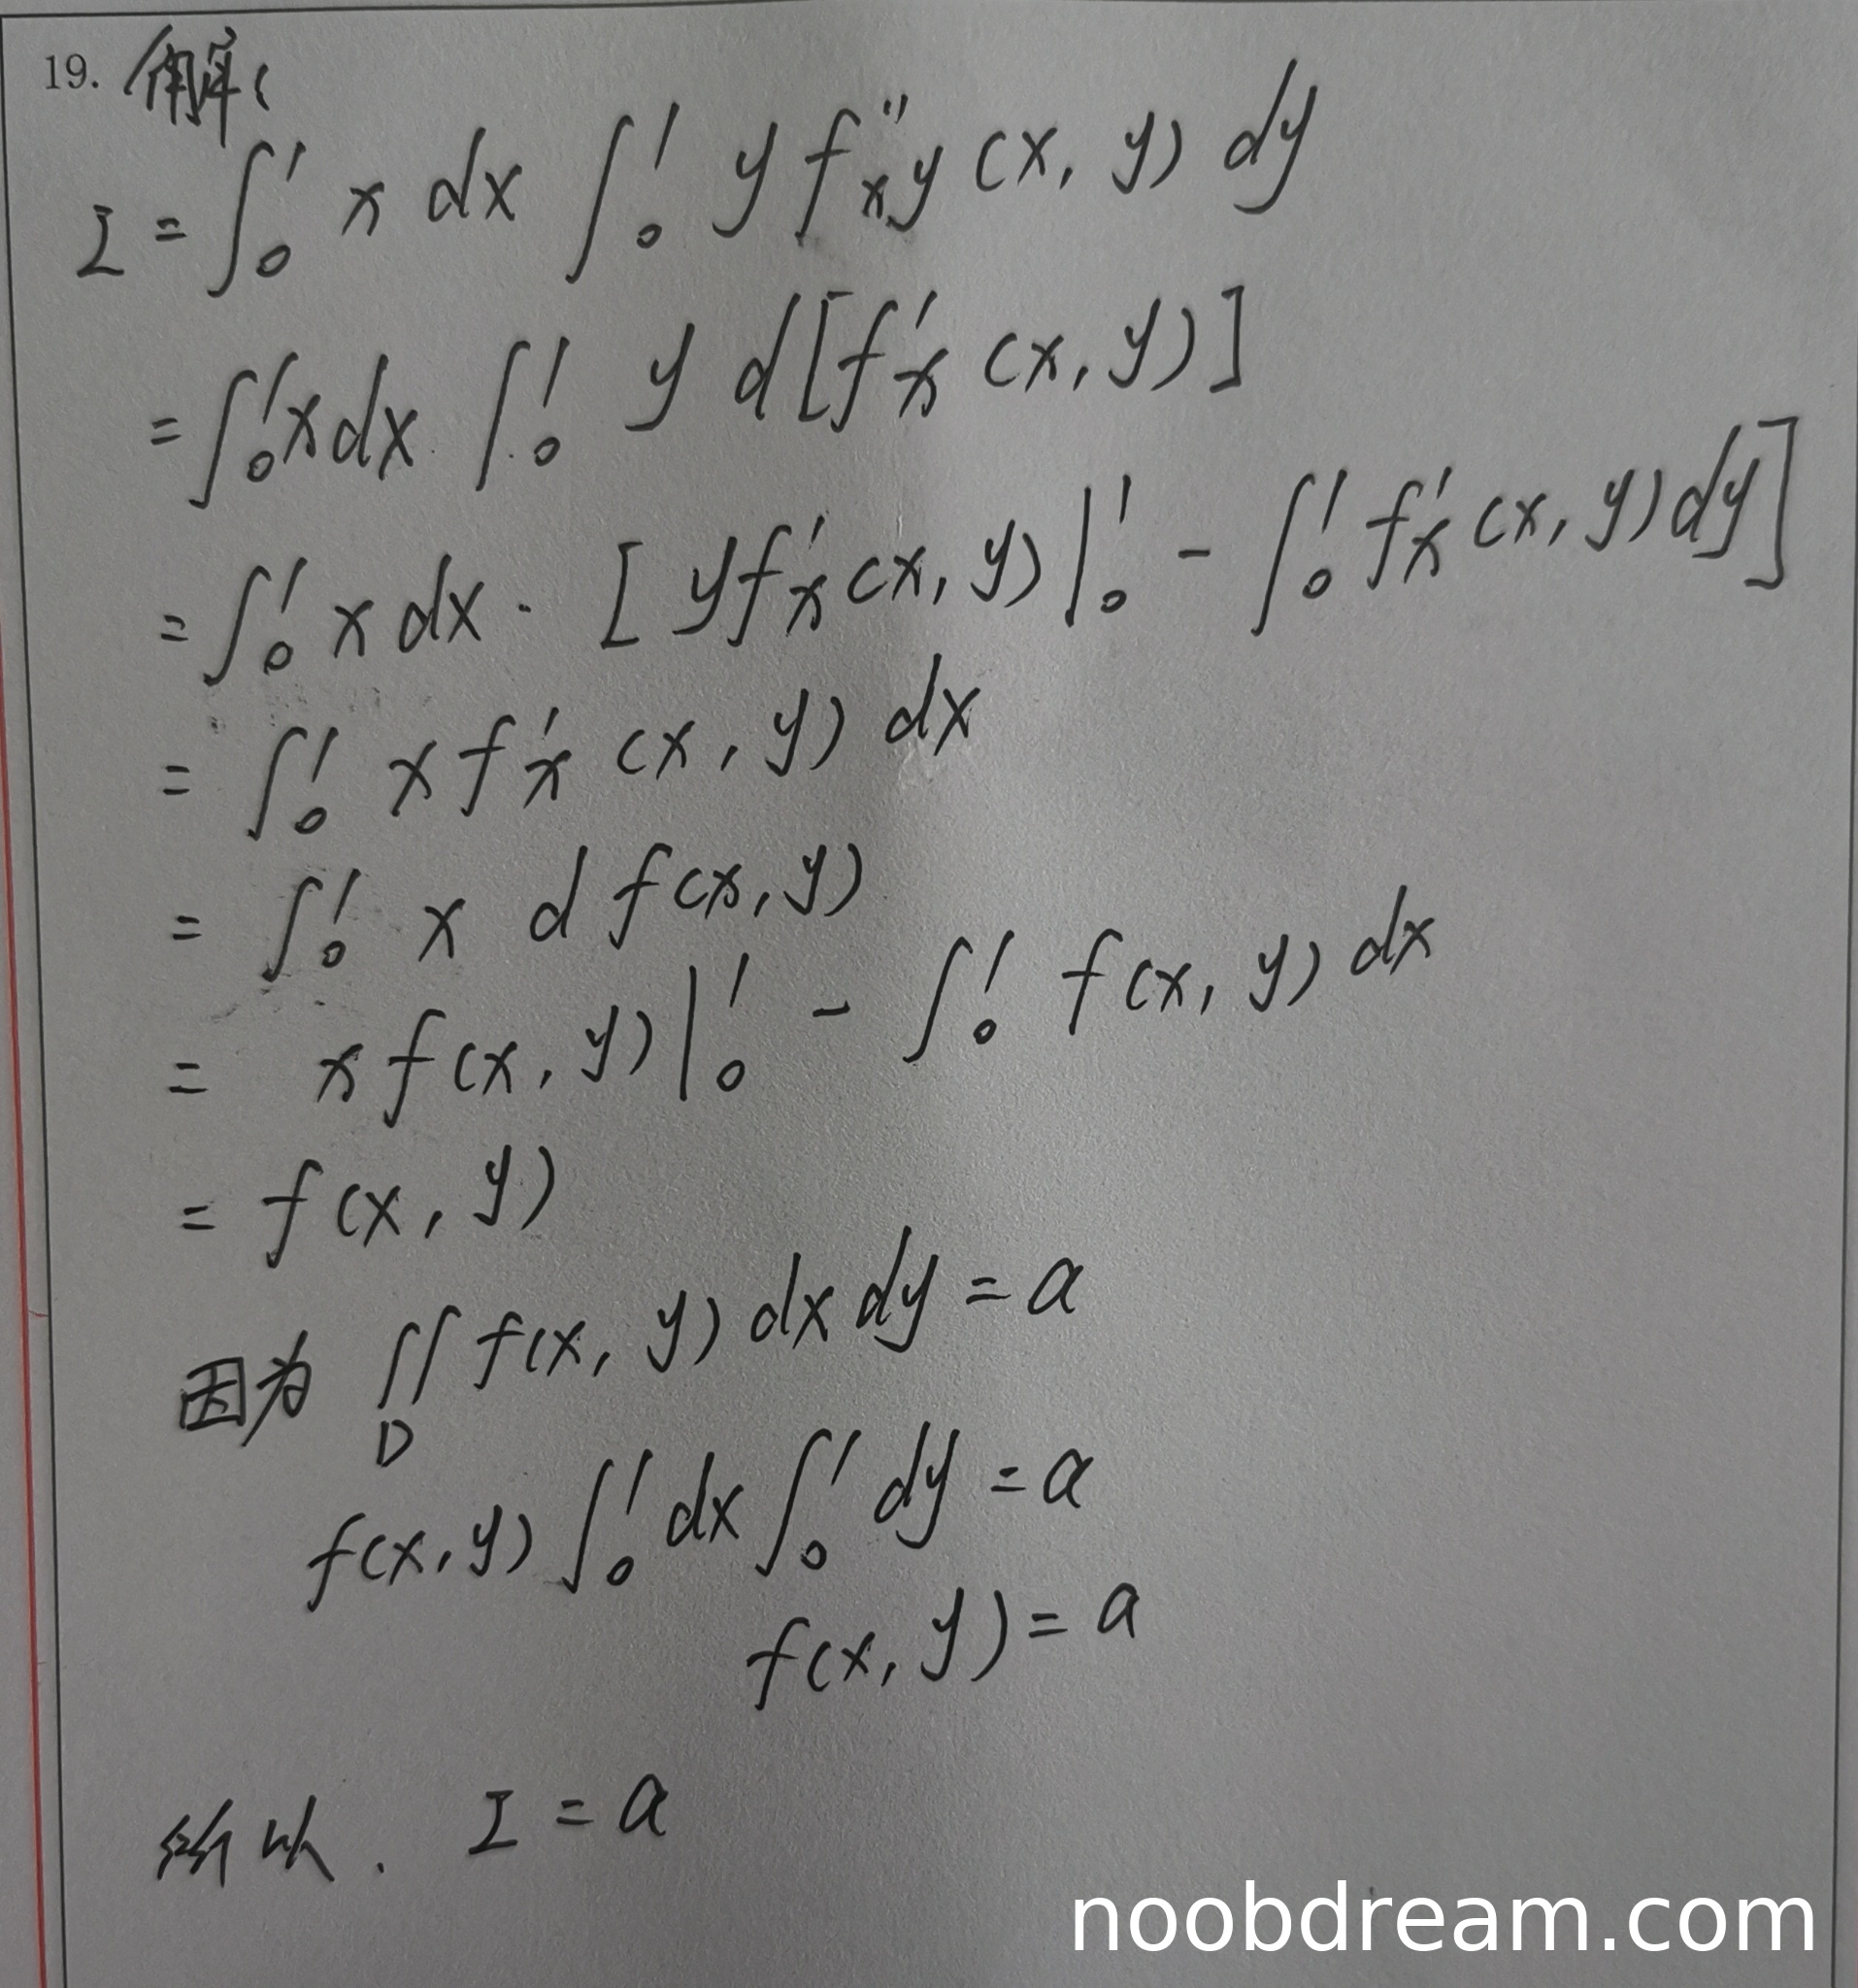 19. 解:
I = ∫₀¹ x dx ∫₀¹ y f''xy (x, y) dy
= ∫₀¹ x dx ∫₀¹ y d[f'x (x, y)]
= ∫₀¹ x dx · [ y f'x (x, y) |₀¹ - ∫₀¹ f'x (x, y) dy ]
= ∫₀¹ x f'x (x, y) dx
= ∫₀¹ x d f(x, y)
= x f(x, y) |₀¹ - ∫₀¹ f(x, y) dx
= f(x, y)
因为 ∬D f(x, y) dx dy = a
f(x, y) ∫₀¹ dx ∫₀¹ dy = a
f(x, y) = a
所以. I = a
noobdream.com